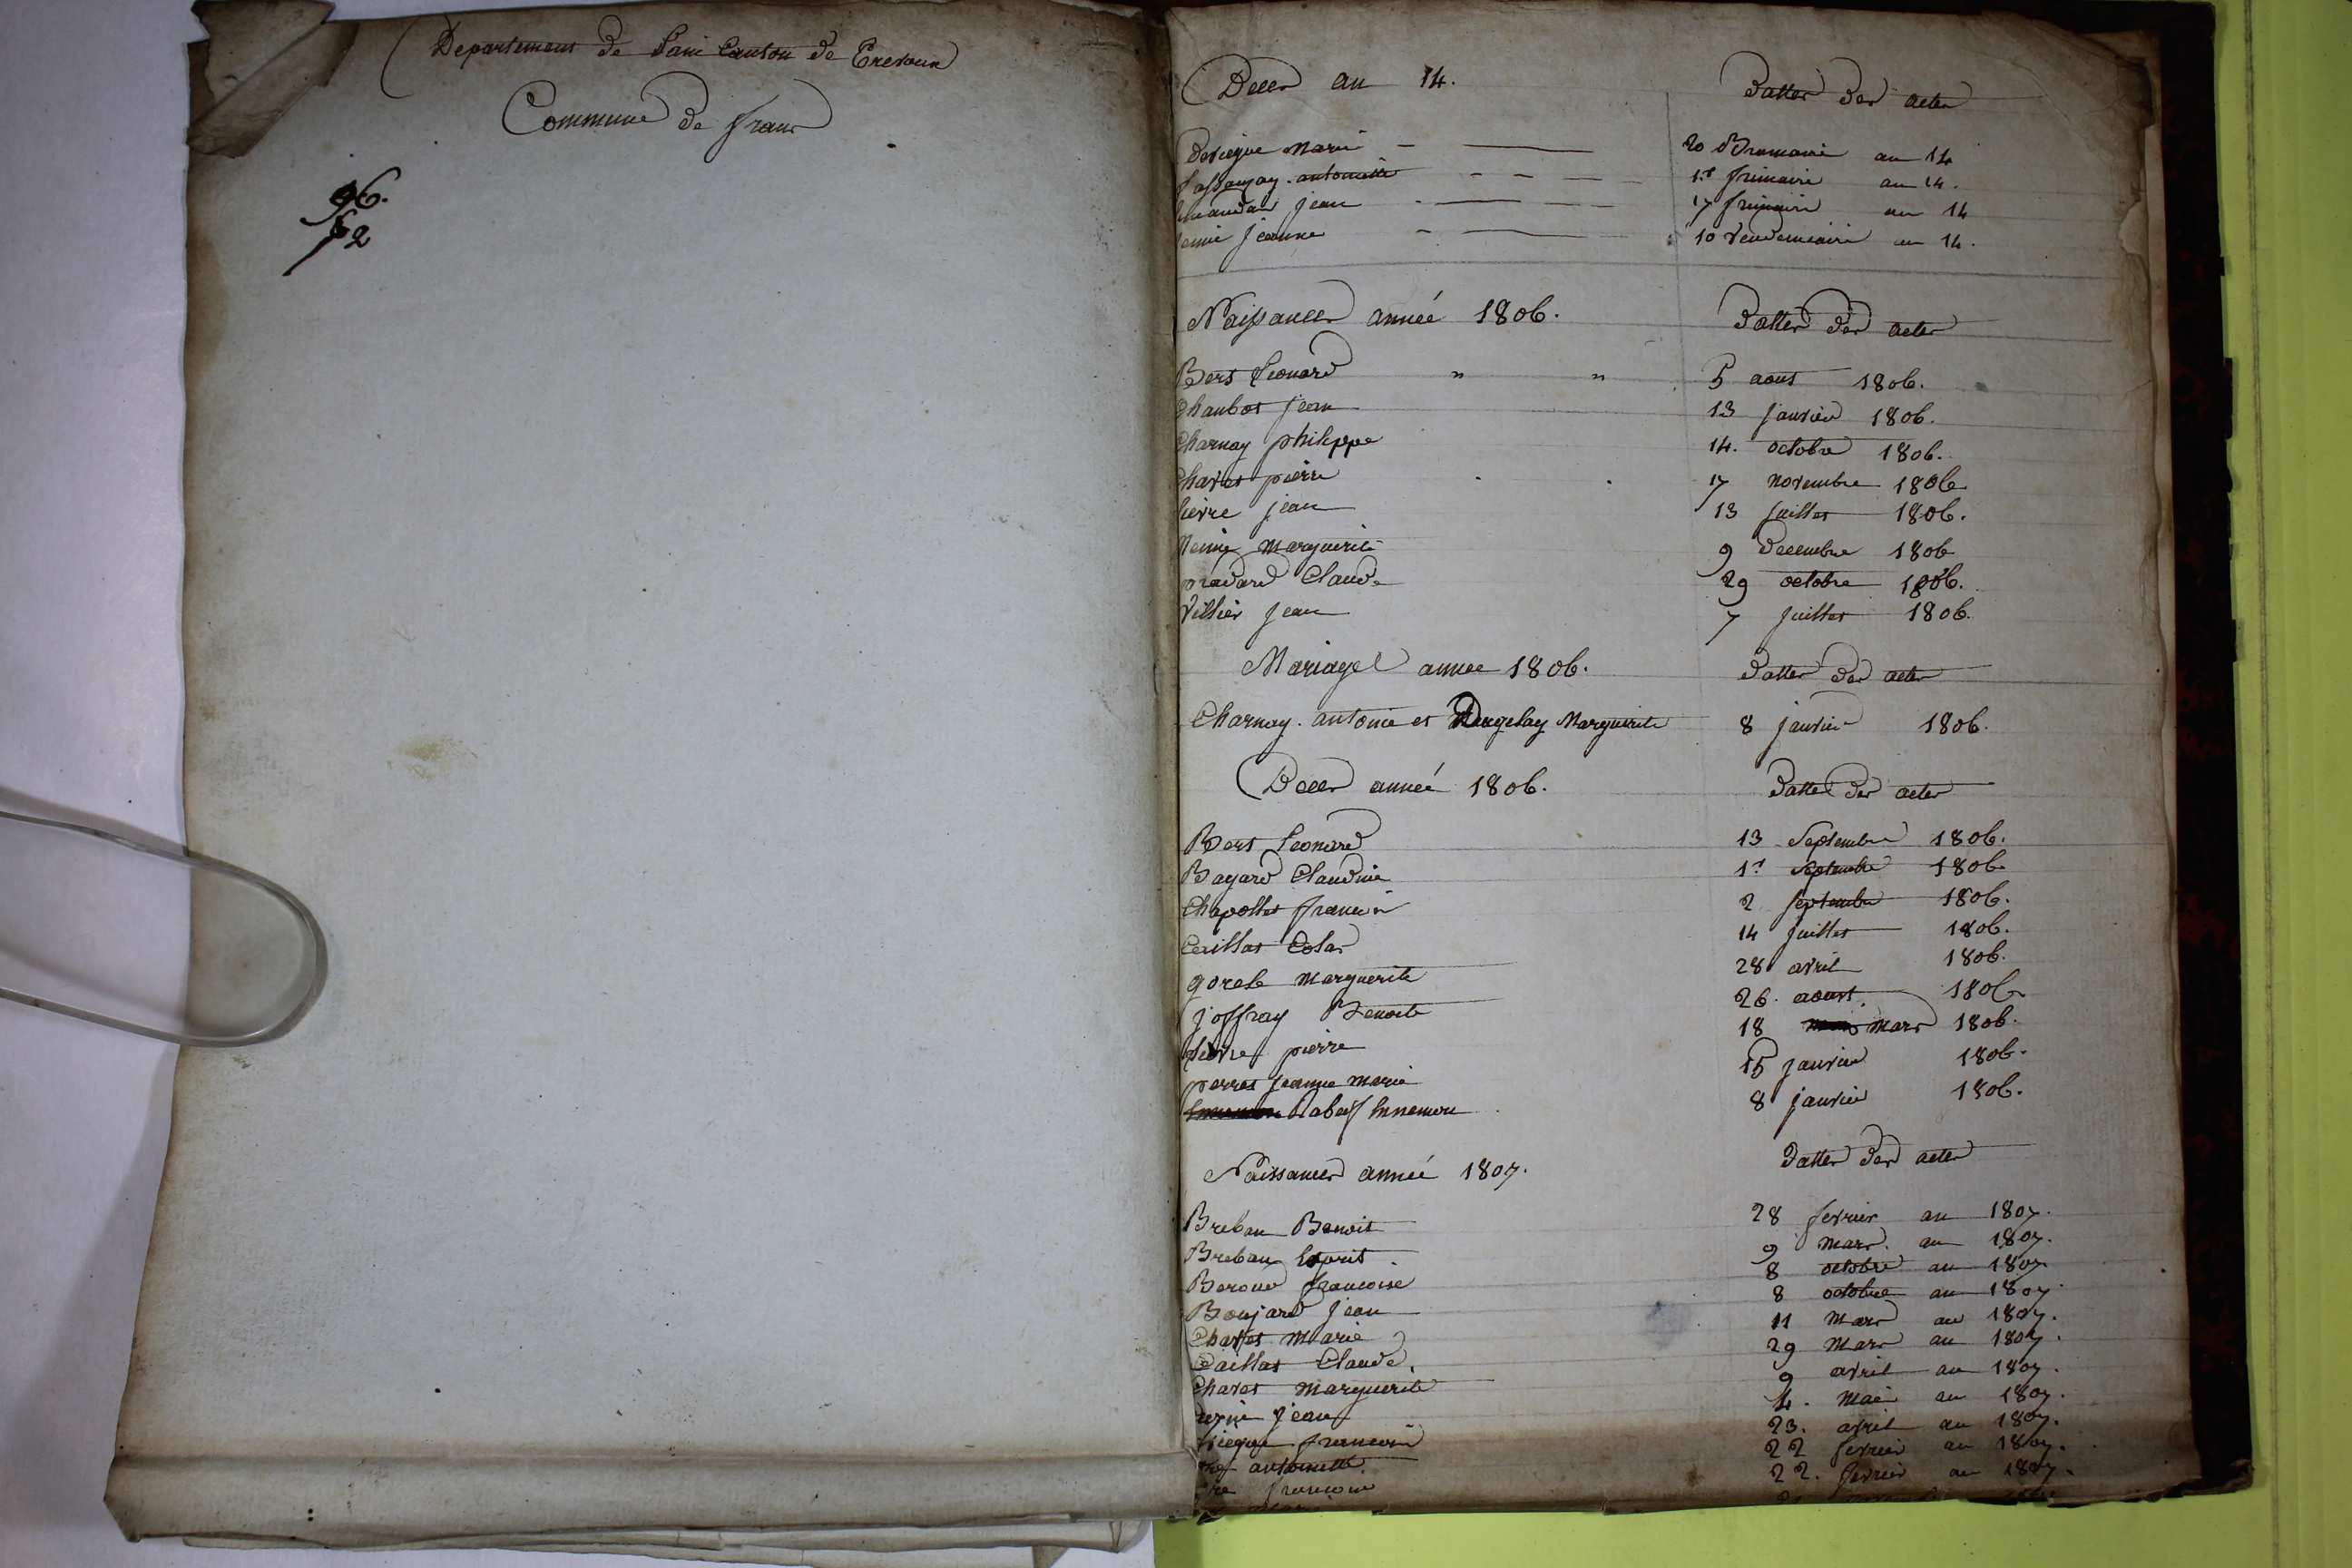 Departement de l'ain Canton de Trevoux
Commune de frans
96.
52
Deces an 14. Dattes des actes
Marie 20 Brumaire an 14
antoinette 1er frimaire an 14.
jean 17 frimaire an 14
jeanne 10 vendemiaire an 14.
Naissances année 1806. Dattes des actes
Bert Leonard " " 5 aout 1806.
Chanbos jean 13 janvier 1806.
Charnay philippe 14. octobre 1806.
Chavet pierre 17 novembre 1806
lievre jean 13 juillet 1806.
Marguerite 9 decembre 1806
pradard Claude 29 octobre 1806.
Villier jean 7 juillet 1806.
Mariages annee 1806. Dattes des actes
Charnay. antoine et Dangelay Marguerite 8 janvier 1806.
Deces année 1806. Dattes des actes
Bert Leonard 13 Septembre 1806.
Bayard Claudine 1er Septembre 1806
Chapollet francois 2 septembre 1806.
Caillat 14 juillet 1806.
gorele Marguerite 28 avril 1806.
joffray Benoite 26. aoust. 1806
lievre pierre 18 mars 1806.
perret jeanne marie 15 janvier 1806.
Labeif Ennemon 8 janvier 1806.
Naissances année 1807. Dattes des actes
Breban Benoit 28 fevrier an 1807.
Breban Esprit 9 mars. an 1807.
Beroud francoise 8 octobre an 1807
Boujard jean 8 octobre an 1807
Chavet Marie 11 Mars an 1807.
Caillat Claude. 29 Mars an 1807.
Chavet marguerite 9 avril an 1807.
jean 4. Mai an 1807.
francois 23. avril an 1807.
antoinette. 22 fevrier an 1807.
francoise 22. fevrier an 1807.